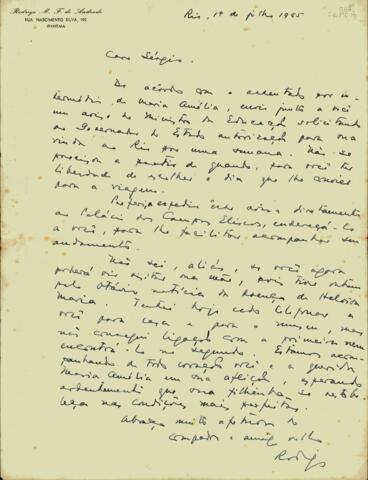 Rodrigo M. F. de Andrade
RUA NASCIMENTO SILVA, 190
IPANEMA
Rio, 1º de julho 1955
Caro Sérgio.
De acordo com o assentado por in-
termédio de Maria Amélia, envio junto a você
um aviso do Ministro da Educação solicitando
ao Governador do Estado autorização para sua
vinda ao Rio por uma semana. Não se
precisou a partir de quando, para você ter
liberdade de escolher o dia que lhe convier
para a viagem.
Preferi a expedir êsse aviso diretamente
ao Palácio dos Campos Elíseos, endereçá-lo
a você, para lhe facilitar acompanhar seu
andamento.
Não sei, aliás, se você agora
poderá vir, pois tive ontem
pelo Otávio notícia da doença de Heloisa
Maria. Tentei hoje cedo telefonar a
você para casa e para o museu, mas
não consegui ligação com a primeira nem
encontrá-lo no segundo. Estamos acom-
panhando de todo coração você e a querida
Maria Amélia em sua aflição, esperando
ardentemente que sua filhinha se resta-
beleça nas condições mais perfeitas.
Abraço muito afetuoso do
compadre e amigo velho
Rodrigo